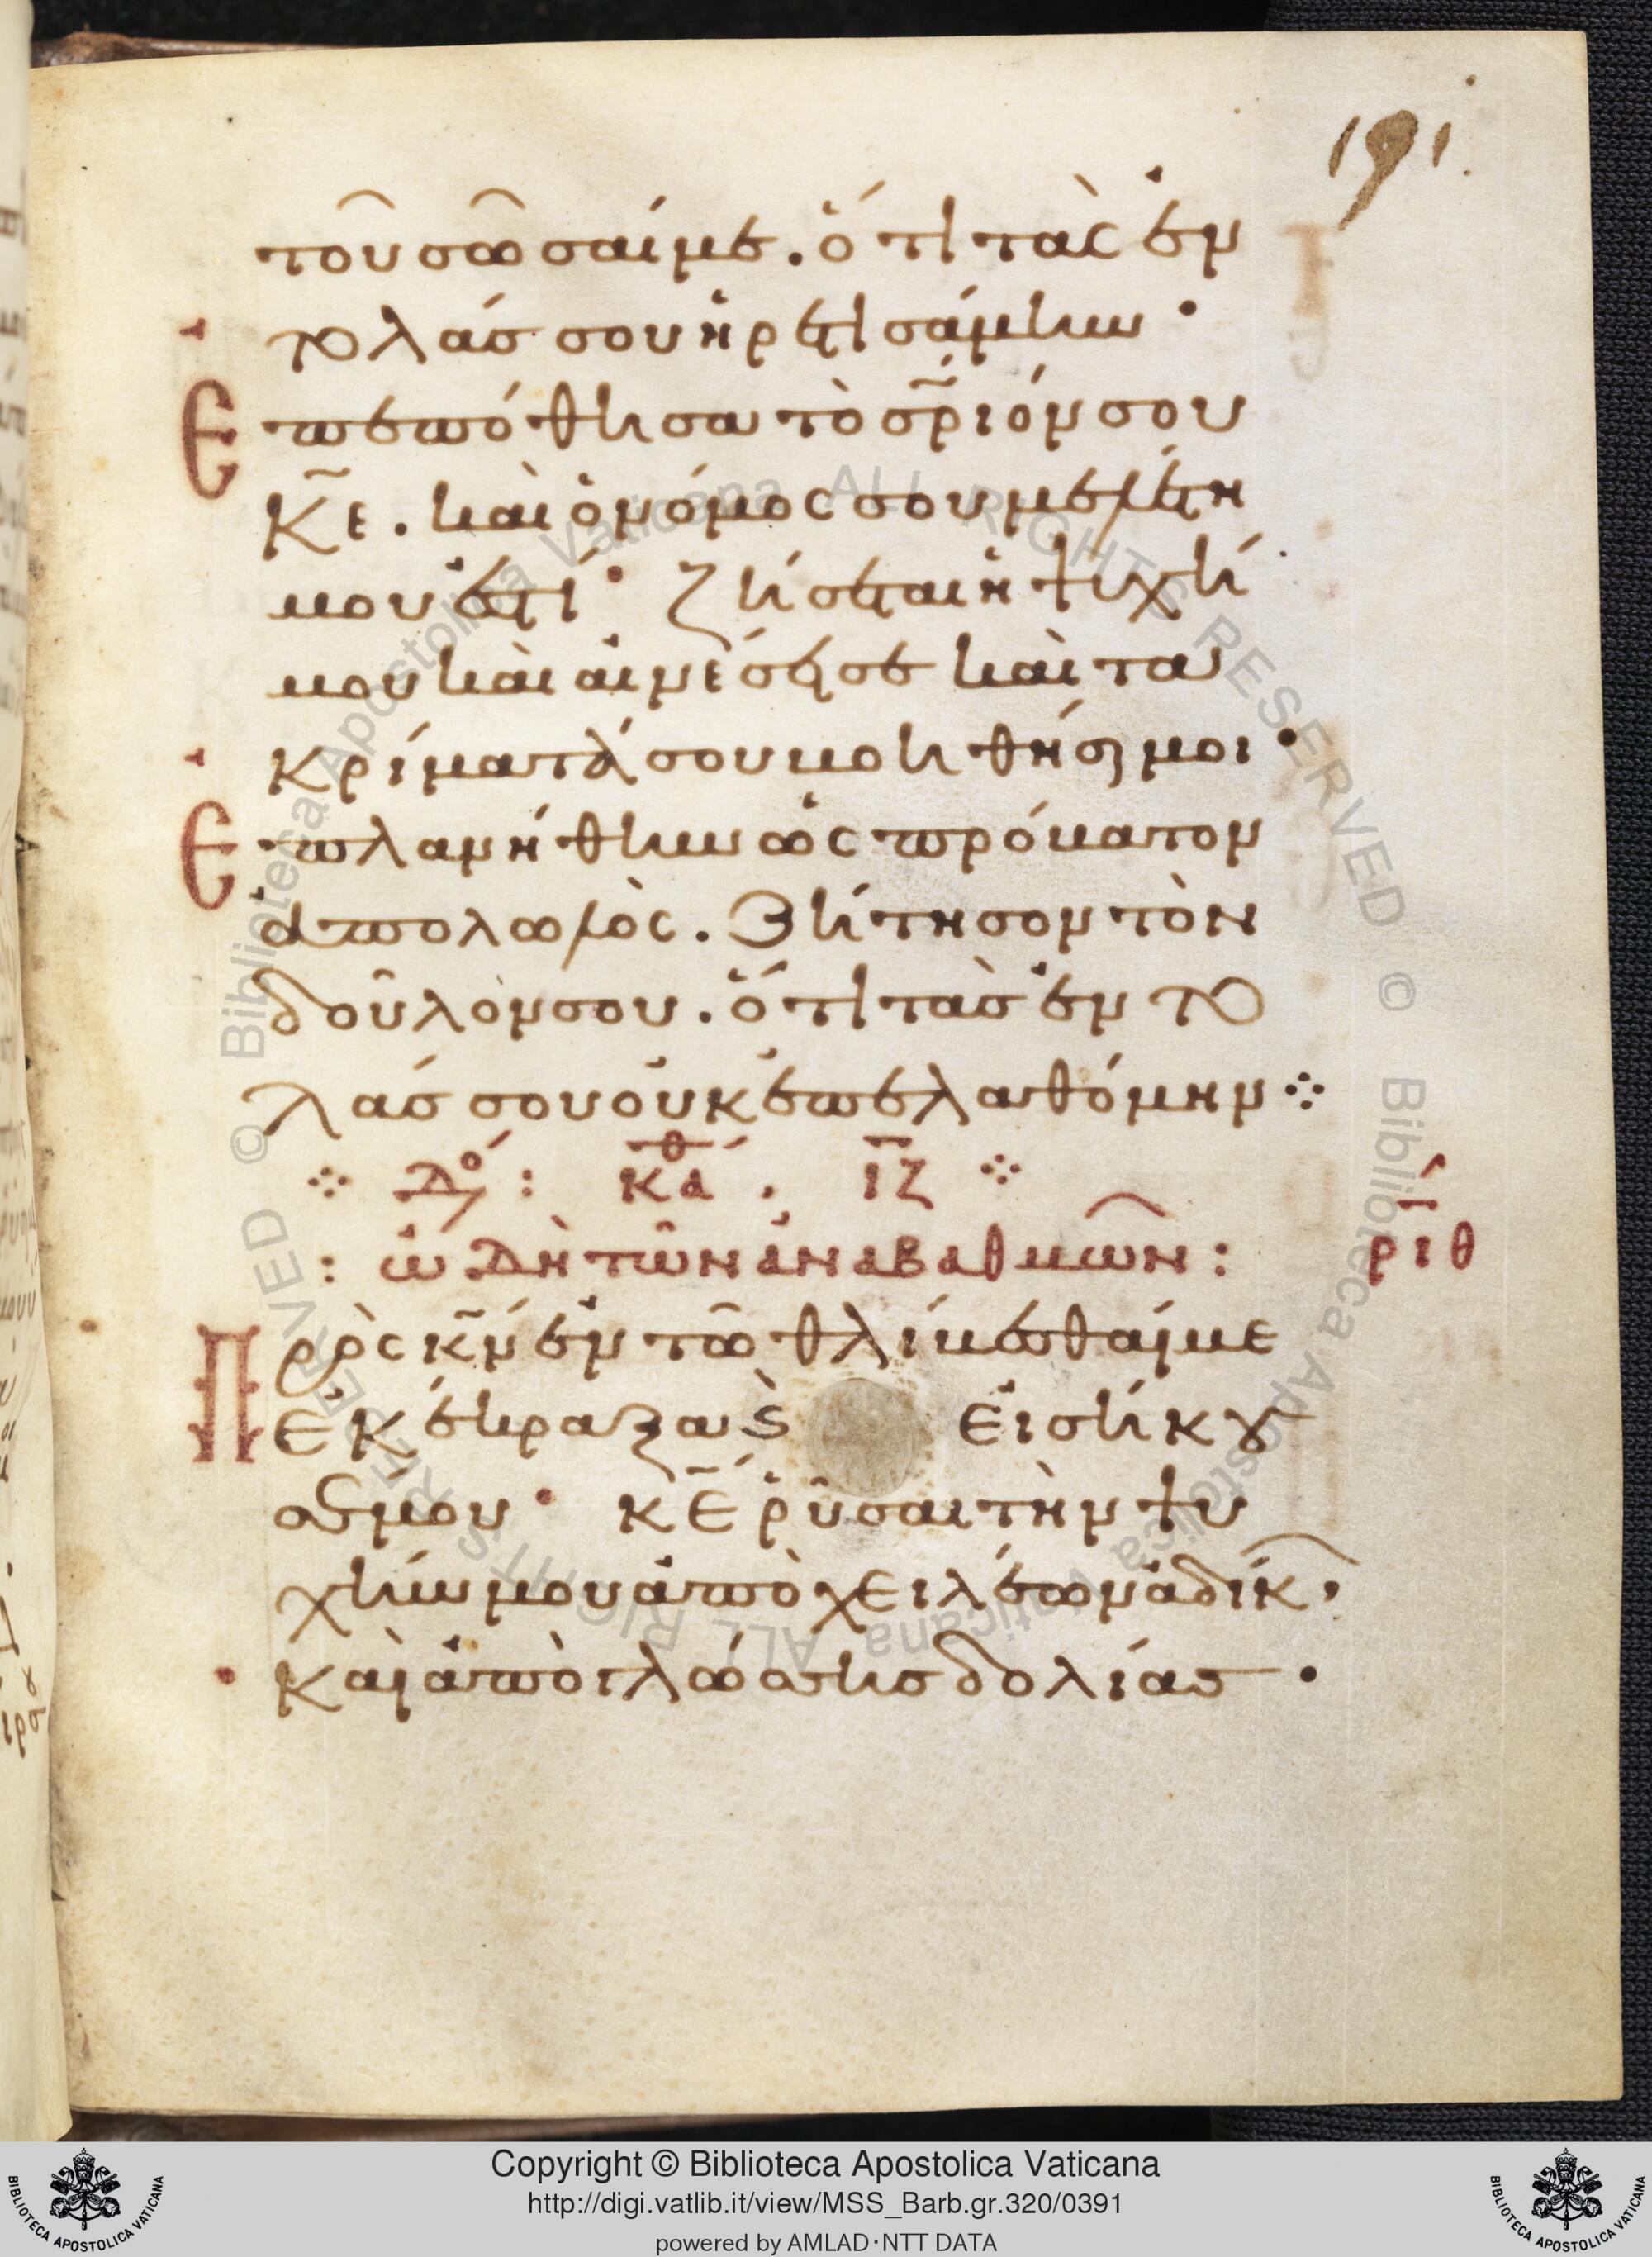 191.
τοῦ σῶσαί με. ὅτι τὰς ἐν
τολάς σου ἡρετισάμην·
Ἐπεπόθησα τὸ σ̅ρ̅ιόν σου
κ̅ε̅. καὶ ὁ νόμος σου μελέτη
μου ἐστί· ζήσεται ἡ ψυχή
μου καὶ αἰνέσει σε καὶ τὰ
κρίματά σου βοηθήσει μοι·
Ἐπλανήθην ὡς πρόβατον
ἀπολωλός. ζήτησον τὸν
δοῦλόν σου. ὅτι τὰς ἐντο
λάς σου οὐκ ἐπελαθόμην ⁘
⁘ Δο : κ̅θ̅α . ι̅ζ̅ ⁘
: ὠδὴ τῶν ἀναβαθμῶν : ριθ
Πρὸς κ̅ν̅ ἐν τῶ θλίβεσθαί με
ἐκέκραξα ϛ εἰσήκου
σέ μου· κ̅ε̅ ῥῦσαι τὴν ψυ
χήν μου ἀπὸ χειλέων ἀδίκ
καὶ ἀπὸ γλώσσης δολίας·
Copyright © Biblioteca Apostolica Vaticana
http://digi.vatlib.it/view/MSS_Barb.gr.320/0391
powered by AMLAD·NTT DATA
BIBLIOTECA APOSTOLICA VATICANA
BIBLIOTECA APOSTOLICA VATICANA